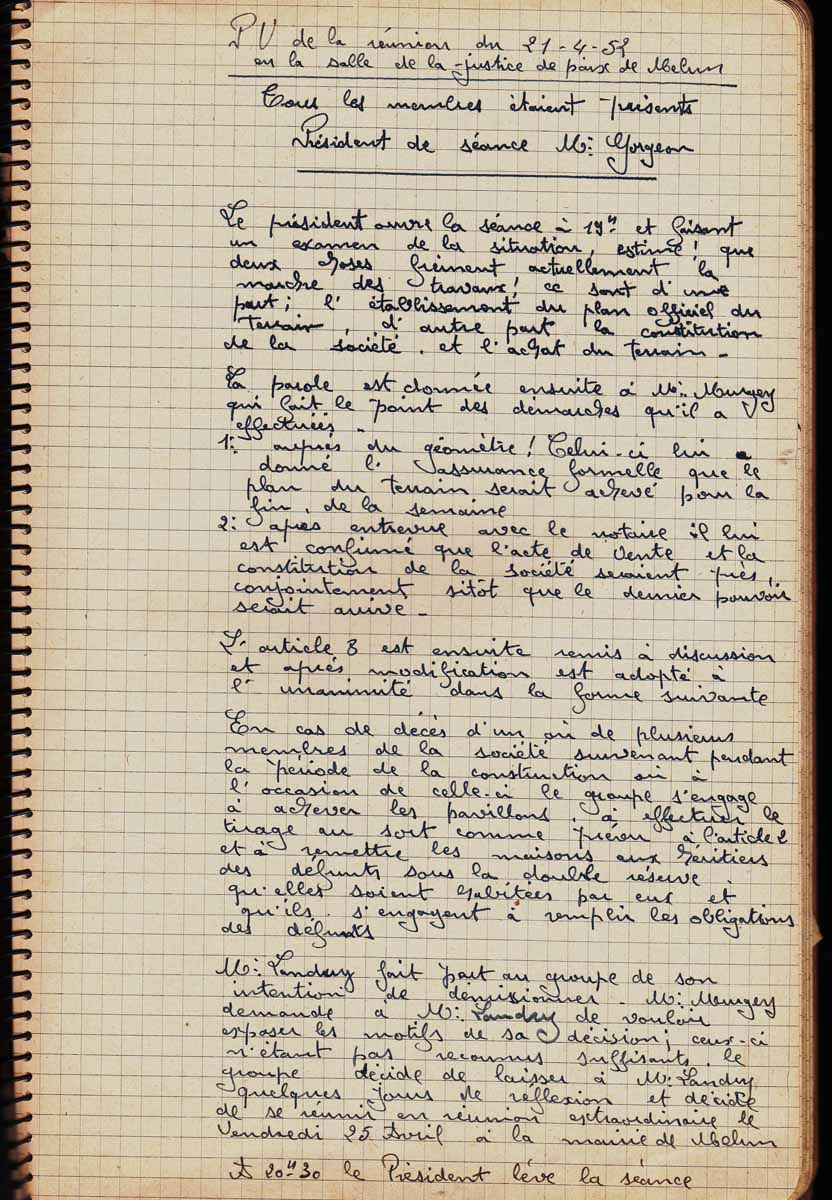 PV de la réunion du 21-4-52
en la salle de la justice de paix de Melun
Tous les membres étaient présents
Président de séance Mr: Gorgeon
Le président ouvre la séance à 19H et faisant
un examen de la situation, estime! que
deux choses freinent actuellement la
marche des travaux! ce sont d'une
part; l'établissement du plan officiel du
Terrain, d'autre part la constitution
de la société. et l'achat du terrain -
La parole est donnée ensuite à Mr: Murgey
qui fait le point des démarches qu'il a
effectuées -
1: auprès du géomètre! Celui-ci lui a
donné l'assurance formelle que le
plan du terrain serait achevé pour la
fin de la semaine
2: après entrevue avec le notaire il lui
est confirmé que l'acte de vente et la
constitution de la société seraient près,
conjointement sitôt que le dernier pouvoir
serait arrivé -
L'article 8 est ensuite remis à discussion
et après modification est adopté à
l'unanimité dans la forme suivante
En cas de décès d'un où de plusieurs
membres de la société survenant pendant
la période de la construction où à
l'occasion de celle-ci le groupe s'engage
à achever les pavillons, à effectuer le
tirage au sort comme prévu à l'article 2
et à remettre les maisons aux héritiers
des défunts sous la double réserve.
qu'elles soient habitées par eux et
qu'ils s'engagent à remplir les obligations
des défunts
Mr: Landry fait part au groupe de son
intention de démissionner - Mr: Murgey
demande à Mr: Landry de vouloir
exposer les motifs de sa décision; ceux-ci
n'étant pas reconnus suffisants. le
groupe décide de laisser à Mr: Landry
quelques jours de réflexion et décide
de se réunir en réunion extraordinaire le
Vendredi 25 Avril à la mairie de Melun
A 20H30 le Président lève la séance